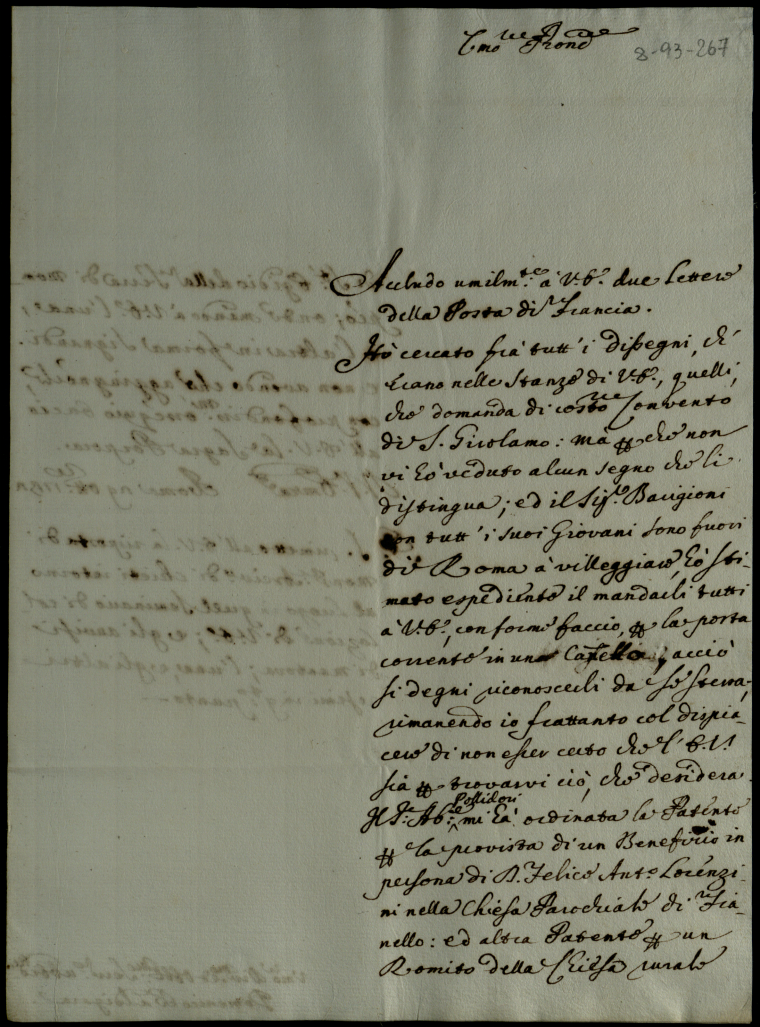 E.mo e R.mo Prone
8-93-267
Accludo umilm.te à V.E. due Lettere
della Posta di Francia.
Hò cercato frà tutt' i dissegni, ch'
erano nelle Stanze di V.E., quelli,
che domanda di cotesto Convento
di S. Girolamo: mà ꝑche non
vi hò veduto alcun segno che li
distingua; ed il Sig.re Barigioni
con tutt' i suoi Giovani sono fuori
di Roma à villeggiare, hò sti-
mato espediente il mandarli tutti
à V.E., conforme faccio, ꝑ la posta
corrente in una Cassetta; acciò
si degni riconoscerli da se stessa,
rimanendo io frattanto col dispia-
cere di non esser certo che l' E.V.
sia ꝑ trovarvi ciò, che desidera.
Il S.r Ab.te Pollidori mi hà ordinata la Patente
ꝑ la provista di un Beneficio in
persona di D. Felice Ant.o Lorenzi-
ni nella Chiesa Parochiale di Fia-
nello: ed altra Patente ꝑ un
Romito della Chiesa rurale